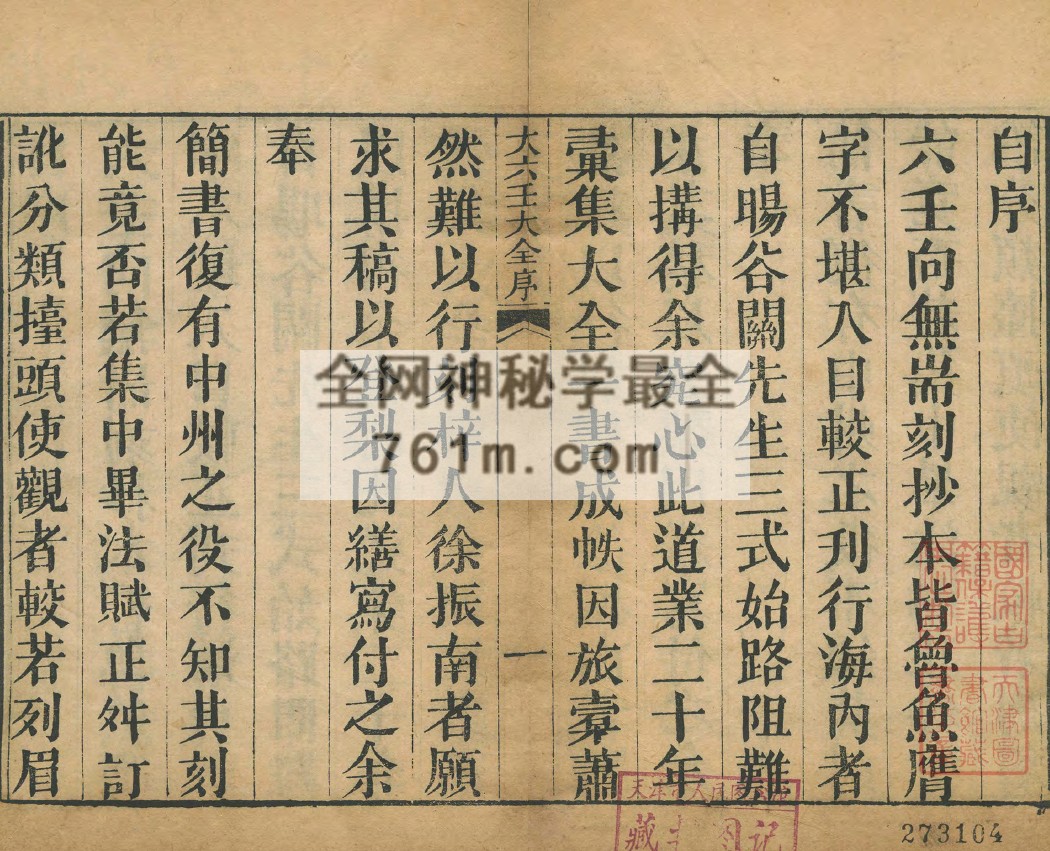 自序
六壬向無耑刻抄本皆魯魚鴈
字不堪入目較正刋行海內者
自暘谷關先生三式始路阻難
以搆得余 心此道業二十年
彚集大全 書成帙因旅橐蕭
大六壬大全序
一
然難以行 梓人徐振南者願
求其稿以 梨因繕寫付之余
奉
簡書復有中州之役不知其刻
能竟否若集中畢法賦正舛訂
訛分類擡頭使觀者較若列眉
全网神秘学最全
761m.com
國家古籍保護
天津圖書館藏
273104